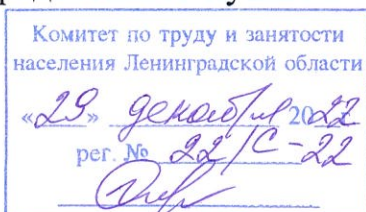 Комитет по труду и занятости
населения Ленинградской области
«29» декабря 2022
рег. № 22/С-22